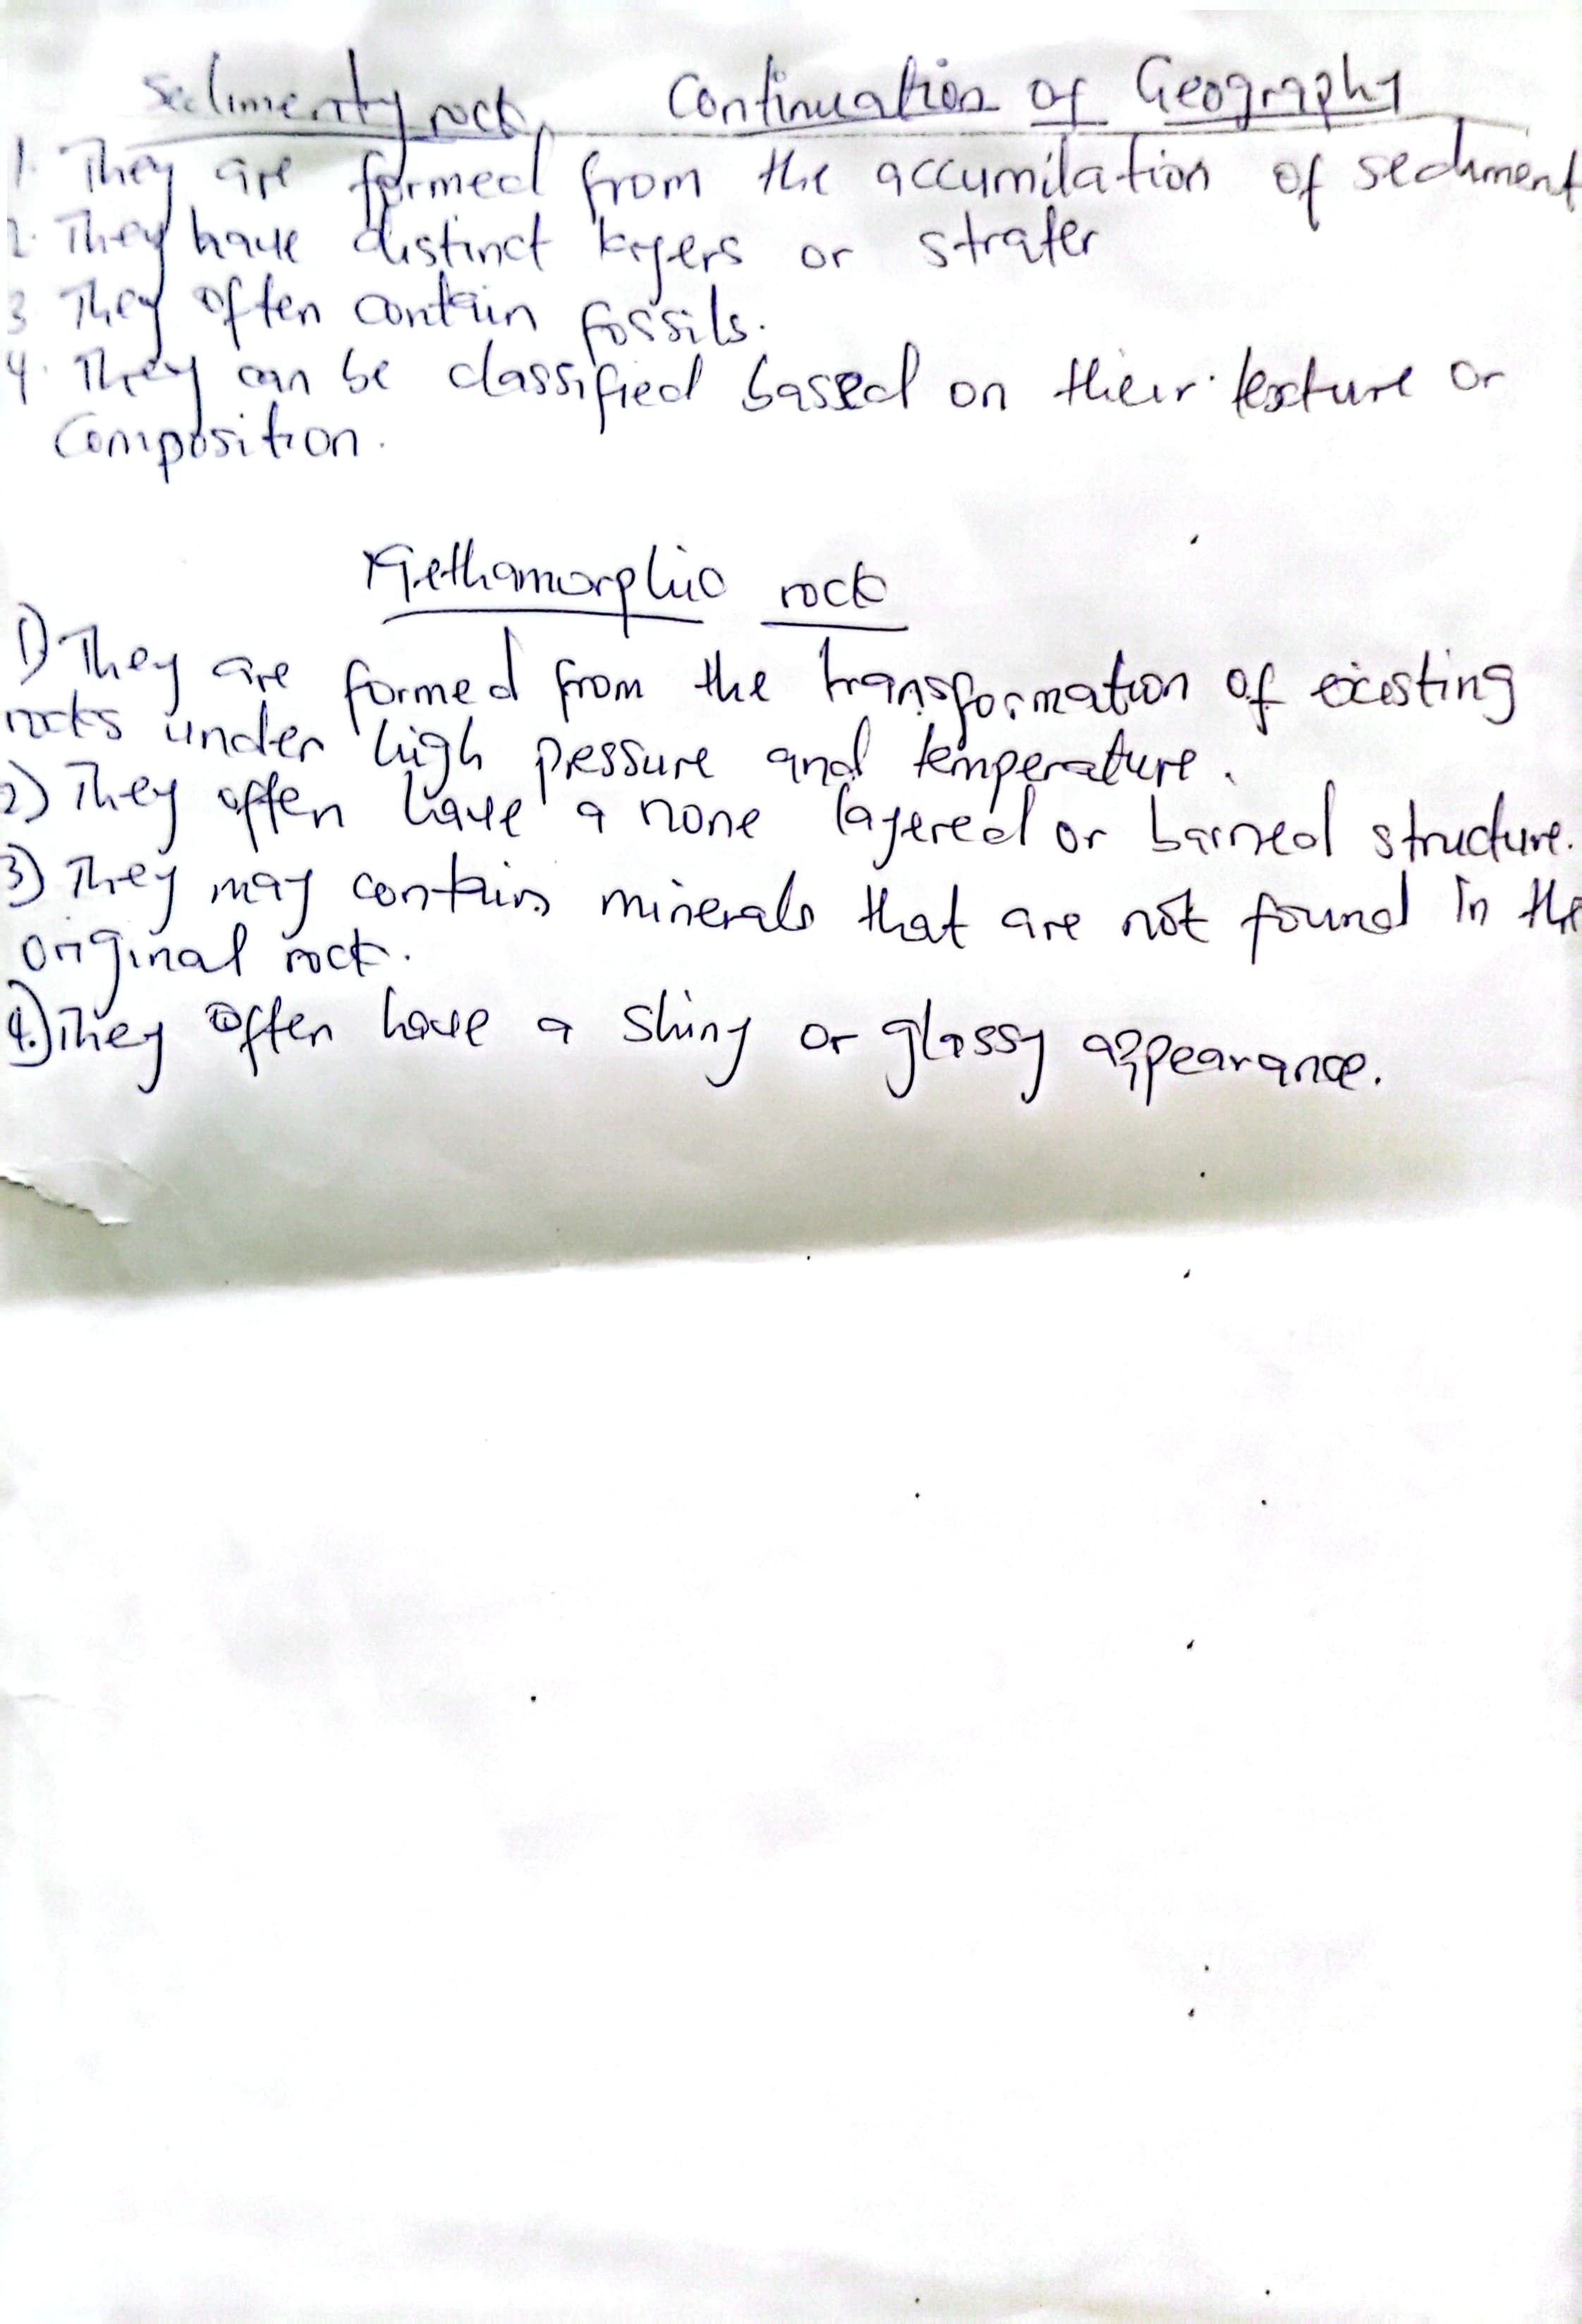 Sedimenty rock Continuation of Geography
1. They are formed from the accumilation of sediment
2. They have distinct layers or strater
3 They often contain fossils.
4. They can be classified based on their texture or
Composition.
Methamorphic rock
1) They are formed from the transformation of existing
rocks under high pressure and temperature.
2) They often have a none layered or barned structure.
3) They may contain minerals that are not found in the
original rock.
4.) They often have a shiny or glassy appearance.